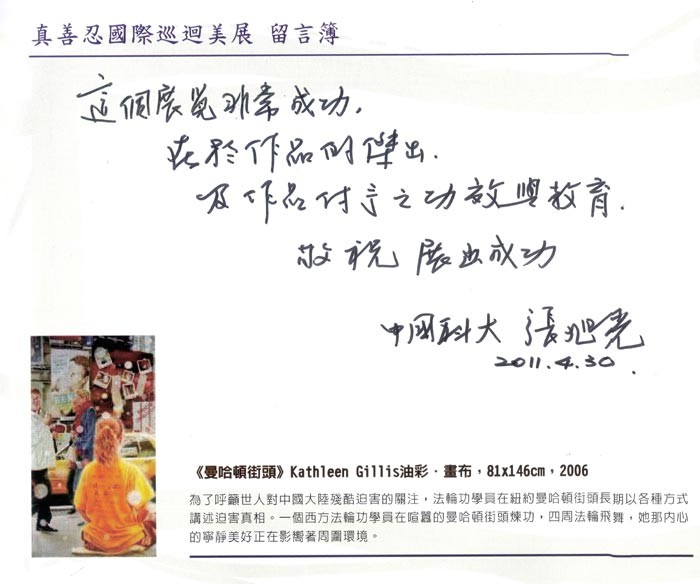 真善忍國際巡迴美展 留言簿
這個展覧非常成功,
在於作品的傑出.
及作品付予之功效與教育.
敬祝 展出成功
中國科大 張旭堯
2011.4.30.
《曼哈頓街頭》Kathleen Gillis油彩．畫布，81x146cm，2006
為了呼籲世人對中國大陸殘酷迫害的關注，法輪功學員在紐約曼哈頓街頭長期以各種方式
講述迫害真相。一個西方法輪功學員在喧囂的曼哈頓街頭煉功，四周法輪飛舞，她那內心
的寧靜美好正在影響著周圍環境。